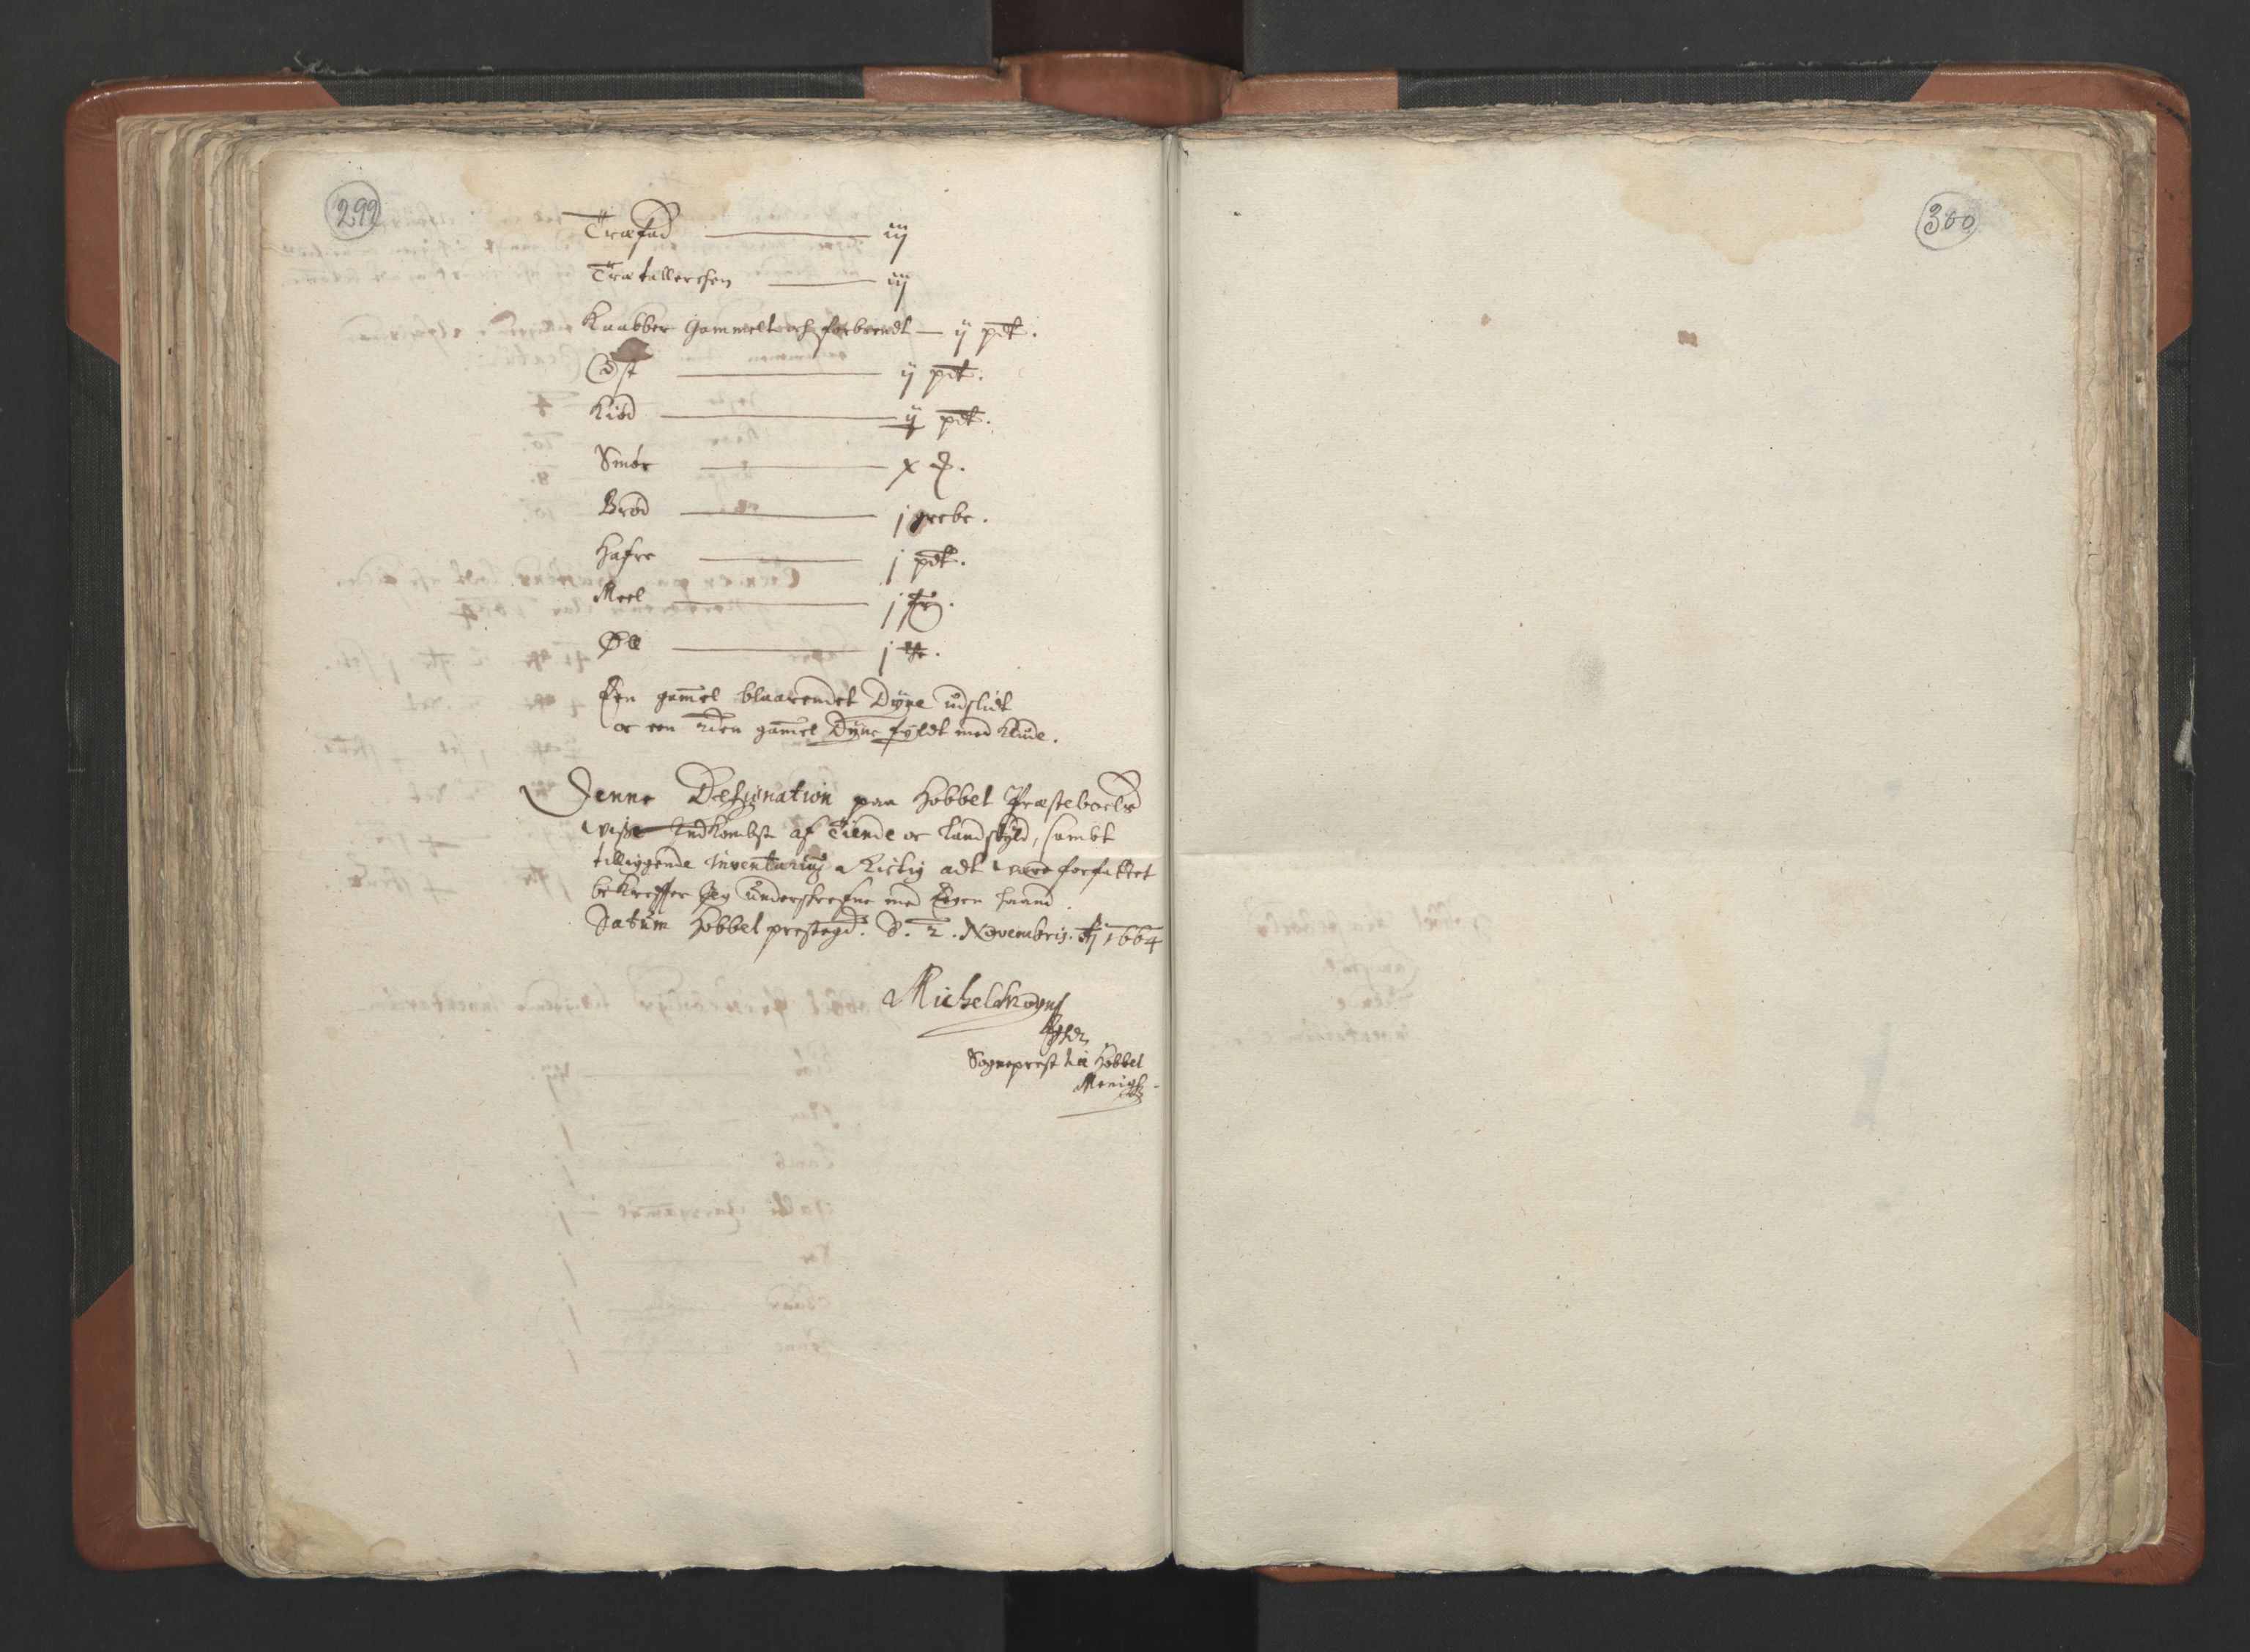 299
Træfad — iij
Trætallerchen — iij
Kaabber Gammelt och forbrendt — ij pdt.
Ost — ij pdt.
Kiød — ij pdt.
Smør — x
Brød — j
Hafre — j pdt.
Meel — j
Øll — j
Een gam̄el blaarendet Dyne udslidt
oc een anden gam̄el Dyne fyldt med Klude.
Denne Designation paa Hobbel Præsteboels
visse Indkombst af Tiende oc Landskyld, sambt
tilliggende Inventarium Rictig adt være forfattet
bekreffter Jeg underskrefne med Egen haand.
Datum Hobbel prestegd: D. 2. Novembris. 1664
Sogneprest til Hobbel
Menigh
300